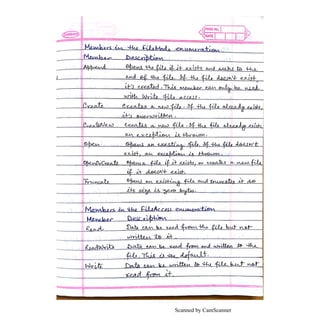 PAGE NO.
DATE
Members in the FileMode enumeration
Member Description
Append Opens the file if it exists and seeks to the
end of the file. If the file doesn't exist,
it's created. This member can only be used
with Write file access.
Create Creates a new file. If the file already exists,
it's overwritten.
CreateNew Creates a new file. If the file already exists,
an exception is thrown.
Open Opens an existing file. If the file doesn't
exist, an exception is thrown.
OpenOrCreate Opens a file if it exists, or creates a new file
if it doesn't exist.
Truncate Opens an existing file and truncates it so
its size is zero bytes.
Members in the FileAccess enumeration
Member Description
Read Data can be read from the file but not
written to it.
ReadWrite Data can be read from and written to the
file. This is the default.
Write Data can be written to the file but not
read from it.
Scanned by CamScanner